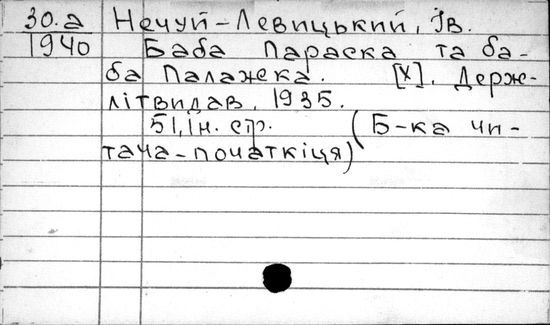 30.а Нечуй-Левицький, Ів.
1940 Баба Параска та ба-
ба Палажска. [Х]. Держ-
літвидав, 1935.
51, Ін. стр. (Б-ка чи-
тача-початкіця)